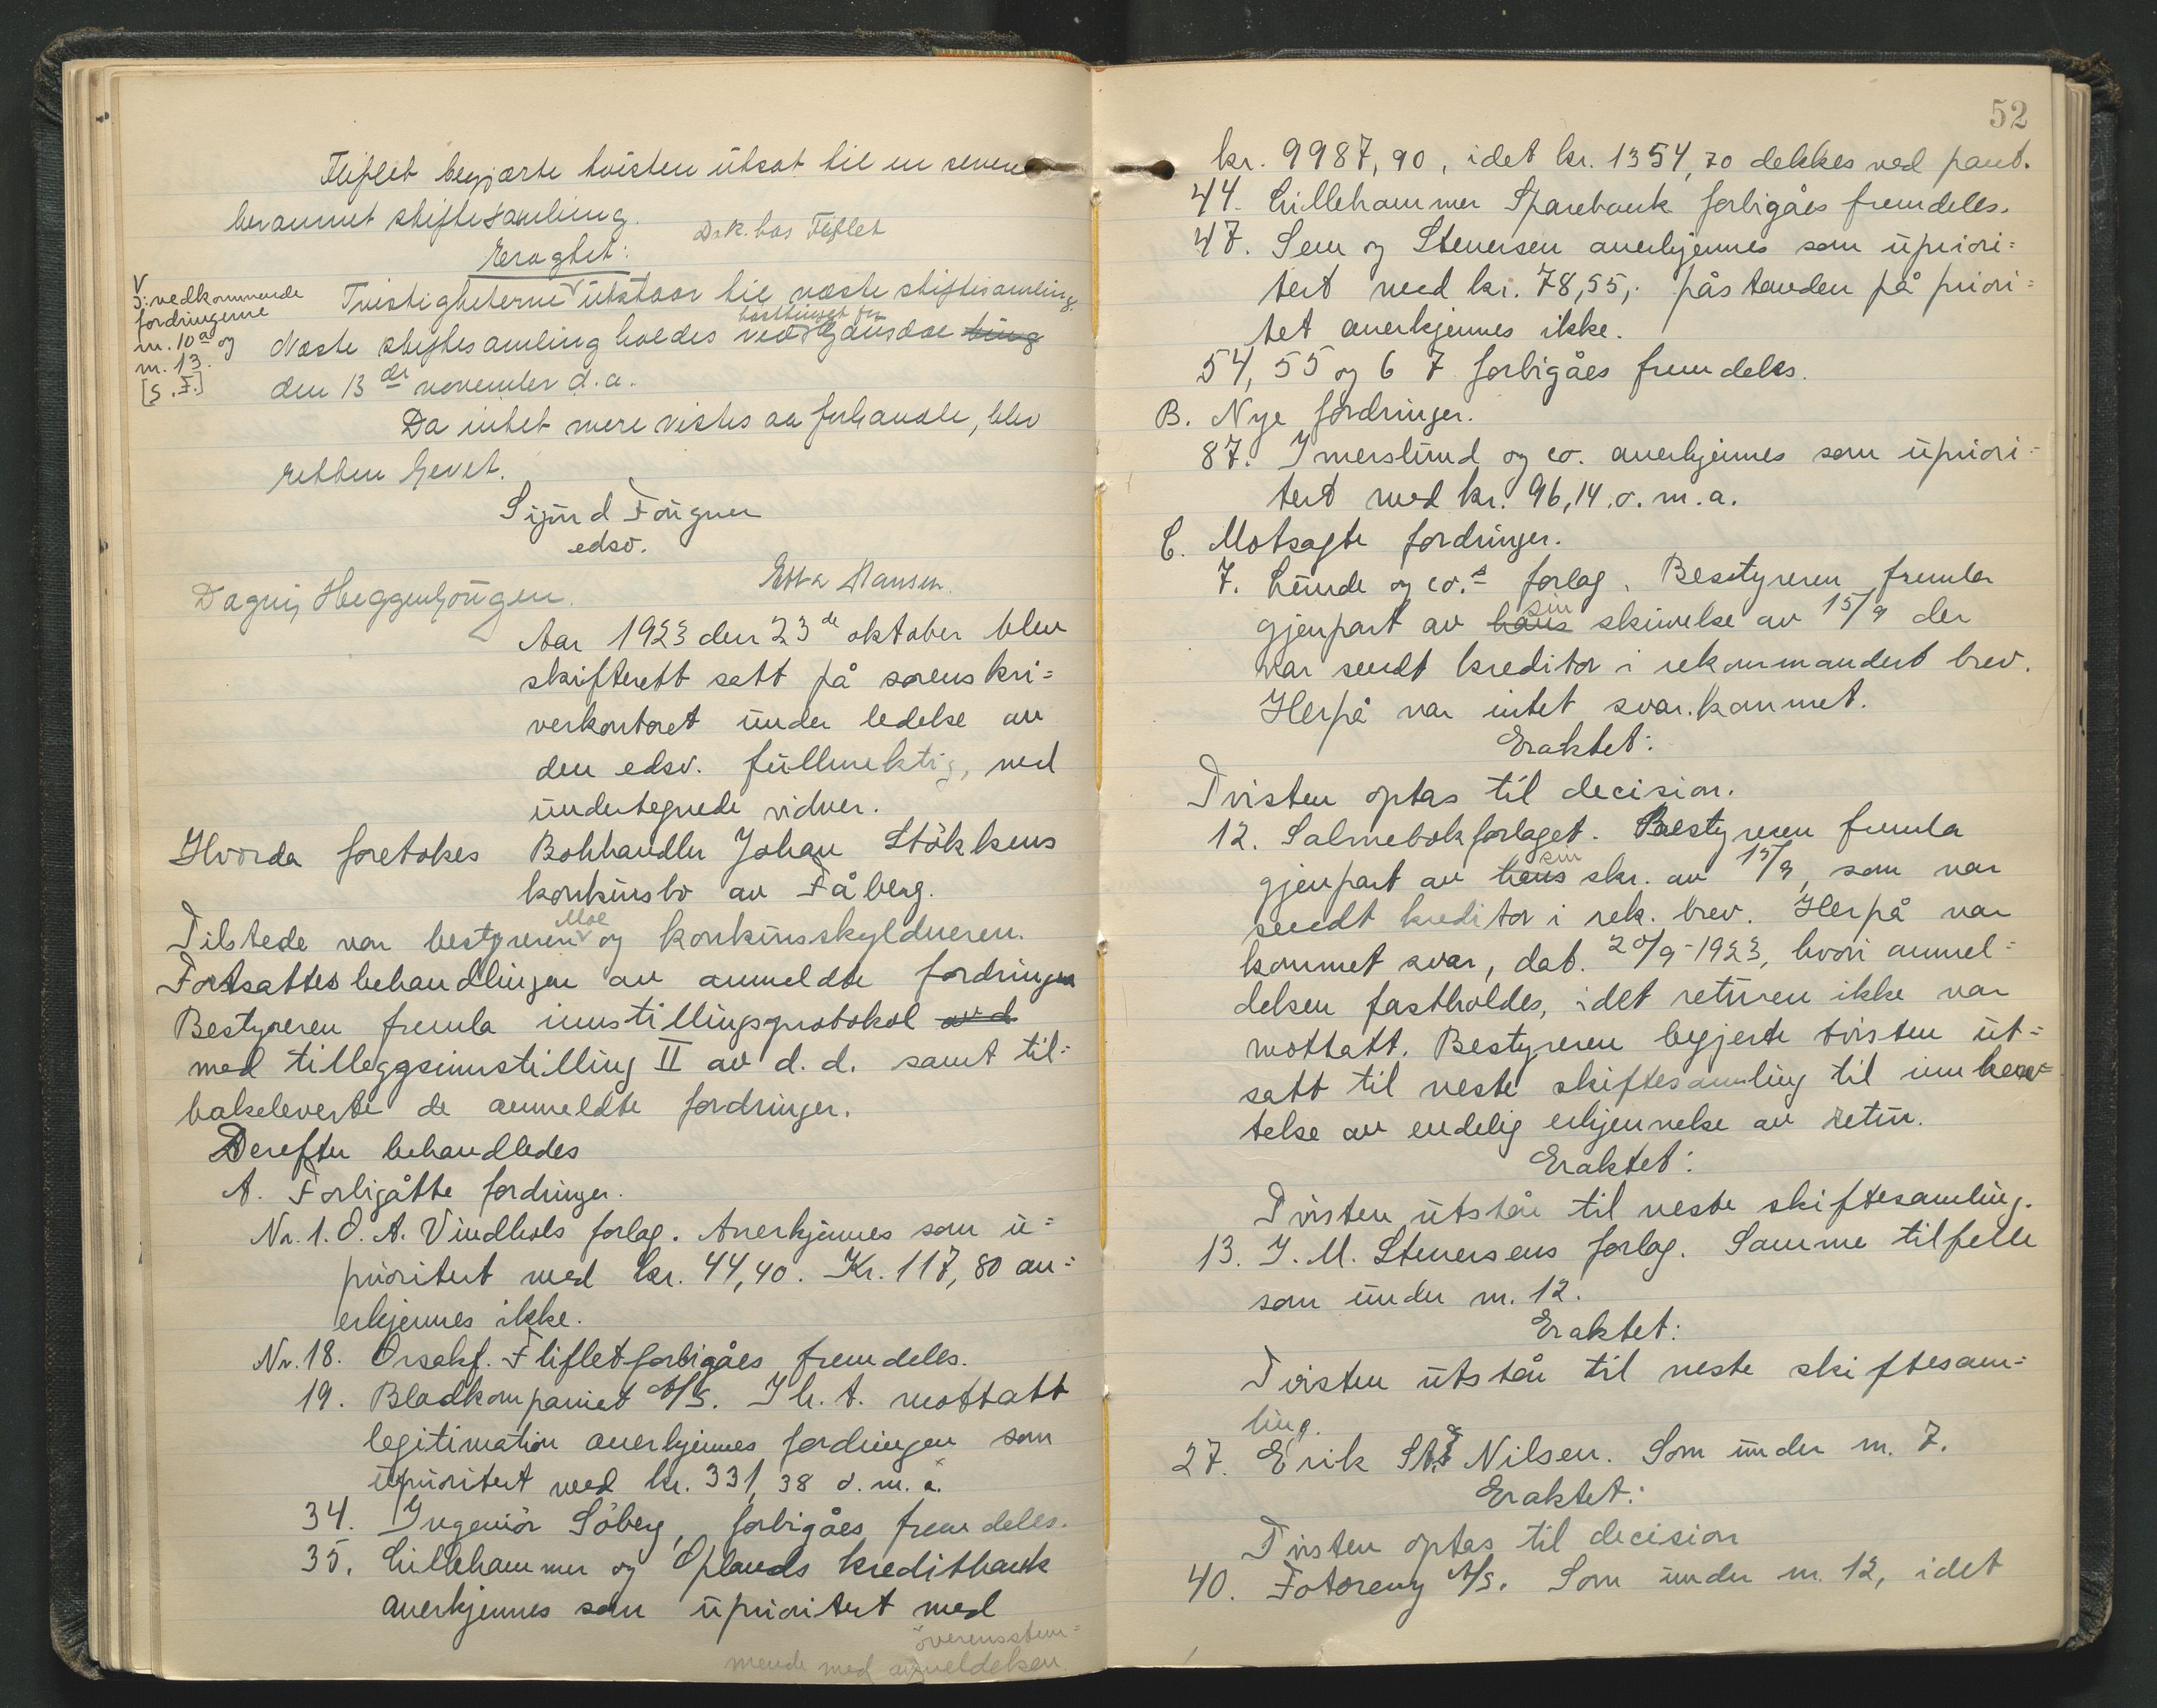 Fliflet begjærte tvisten utsat til en senere
berammet skiftesamling.
Drk. hos Fliflet
Eragtet:
Tvistigheterne utstaar til næste skiftesamling.
V
ɔ: vedkommende
fordringerne
nr. 10a og
nr. 13.
[S.F.]
Næste skiftesamling holdes ved Gausdal ting
høsttinget for
den 13de november d.a.
Da intet mere vistes aa forhandle, blev
retten hevet.
Sigurd Fougner
edsv.
Dagny Heggenhougen.
Esther Hansen.
Aar 1923 den 23de oktober blev
skifterett satt på sorenskri=
verkontoret under ledelse av
den edsv. fullmektig, med
undertegnede vidner.
Hvorda foretokes Bokhandler Johan Stökkens
konkursbo av Fåberg.
Tilstede var bestyreren Moe og konkursskyldneren.
Fortsattes behandlingen av anmeldte fordringer
Bestyreren fremla innstillingsprotokol av d
med tilleggsinnstilling II av d. d. samt til=
bakeleverte de anmeldte fordringer.
Derefter behandledes
A. Forbigåtte fordringer.
Nr. 1. O. A. Vindhols forlag. Anerkjennes som u=
prioritert med kr. 44,40. Kr. 117,80 an=
erkjennes ikke.
Nr. 18. Orsakf. Fliflet forbigåes fremdeles.
19. Bladkompaniet A/S. I h. t. mottatt
legitimation anerkjennes fordringen som
uprioritert med kr. 331,38 o. m. a.
34. Ingeniör Söberg, forbigåes fremdeles.
35. Lillehammer og Oplands kreditbank
anerkjennes som uprioritert med
överensstem=
mende med anmeldelsen.
52
kr. 9987,90, idet kr. 1354,70 dekkes ved pant.
44. Lillehammer Sparebank forbigåes fremdeles.
47. Sem og Stenersen anerkjennes som upriori=
tert med kr. 78,55,. påstanden på priori=
tet anerkjennes ikke.
54, 55 og 67 forbigåes fremdeles.
B. Nye fordringer.
87. Imerslund og co. anerkjennes som upriori=
tert med kr. 96,14 o. m. a.
C. Motsagte fordringer.
7. Lunde og co.s forlag. Bestyreren fremla
gjenpart av hans sin skrivelse av 15/9 der
var sendt kreditor i rekommandert brev.
Herpå var intet svar kommet.
Eraktet:
Tvisten optas til decision.
12. Salmebokforlaget. Bestyreren fremla
gjenpart av hans sin skr. av 15/9, som var
sendt kreditor i rek. brev. Herpå var
kommet svar, dat. 20/9-1923, hvori anmel=
delsen fastholdes, idet returen ikke var
mottatt. Bestyreren begjerte tvisten ut=
satt til neste skiftesamling til innhen=
telse av endelig erkjennelse av retur.
Eraktet:
Tvisten utstår til neste skiftesamling.
13. J. M. Stenersens forlag. Samme tilfelle
som under nr. 12.
Eraktet:
Tvisten utstår til neste skiftesam=
ling.
27. Erik St. Nilsen. Som under nr. 7.
Eraktet:
Tvisten optas til decision
40. Fotoreny A/S. Som under nr. 12, idet